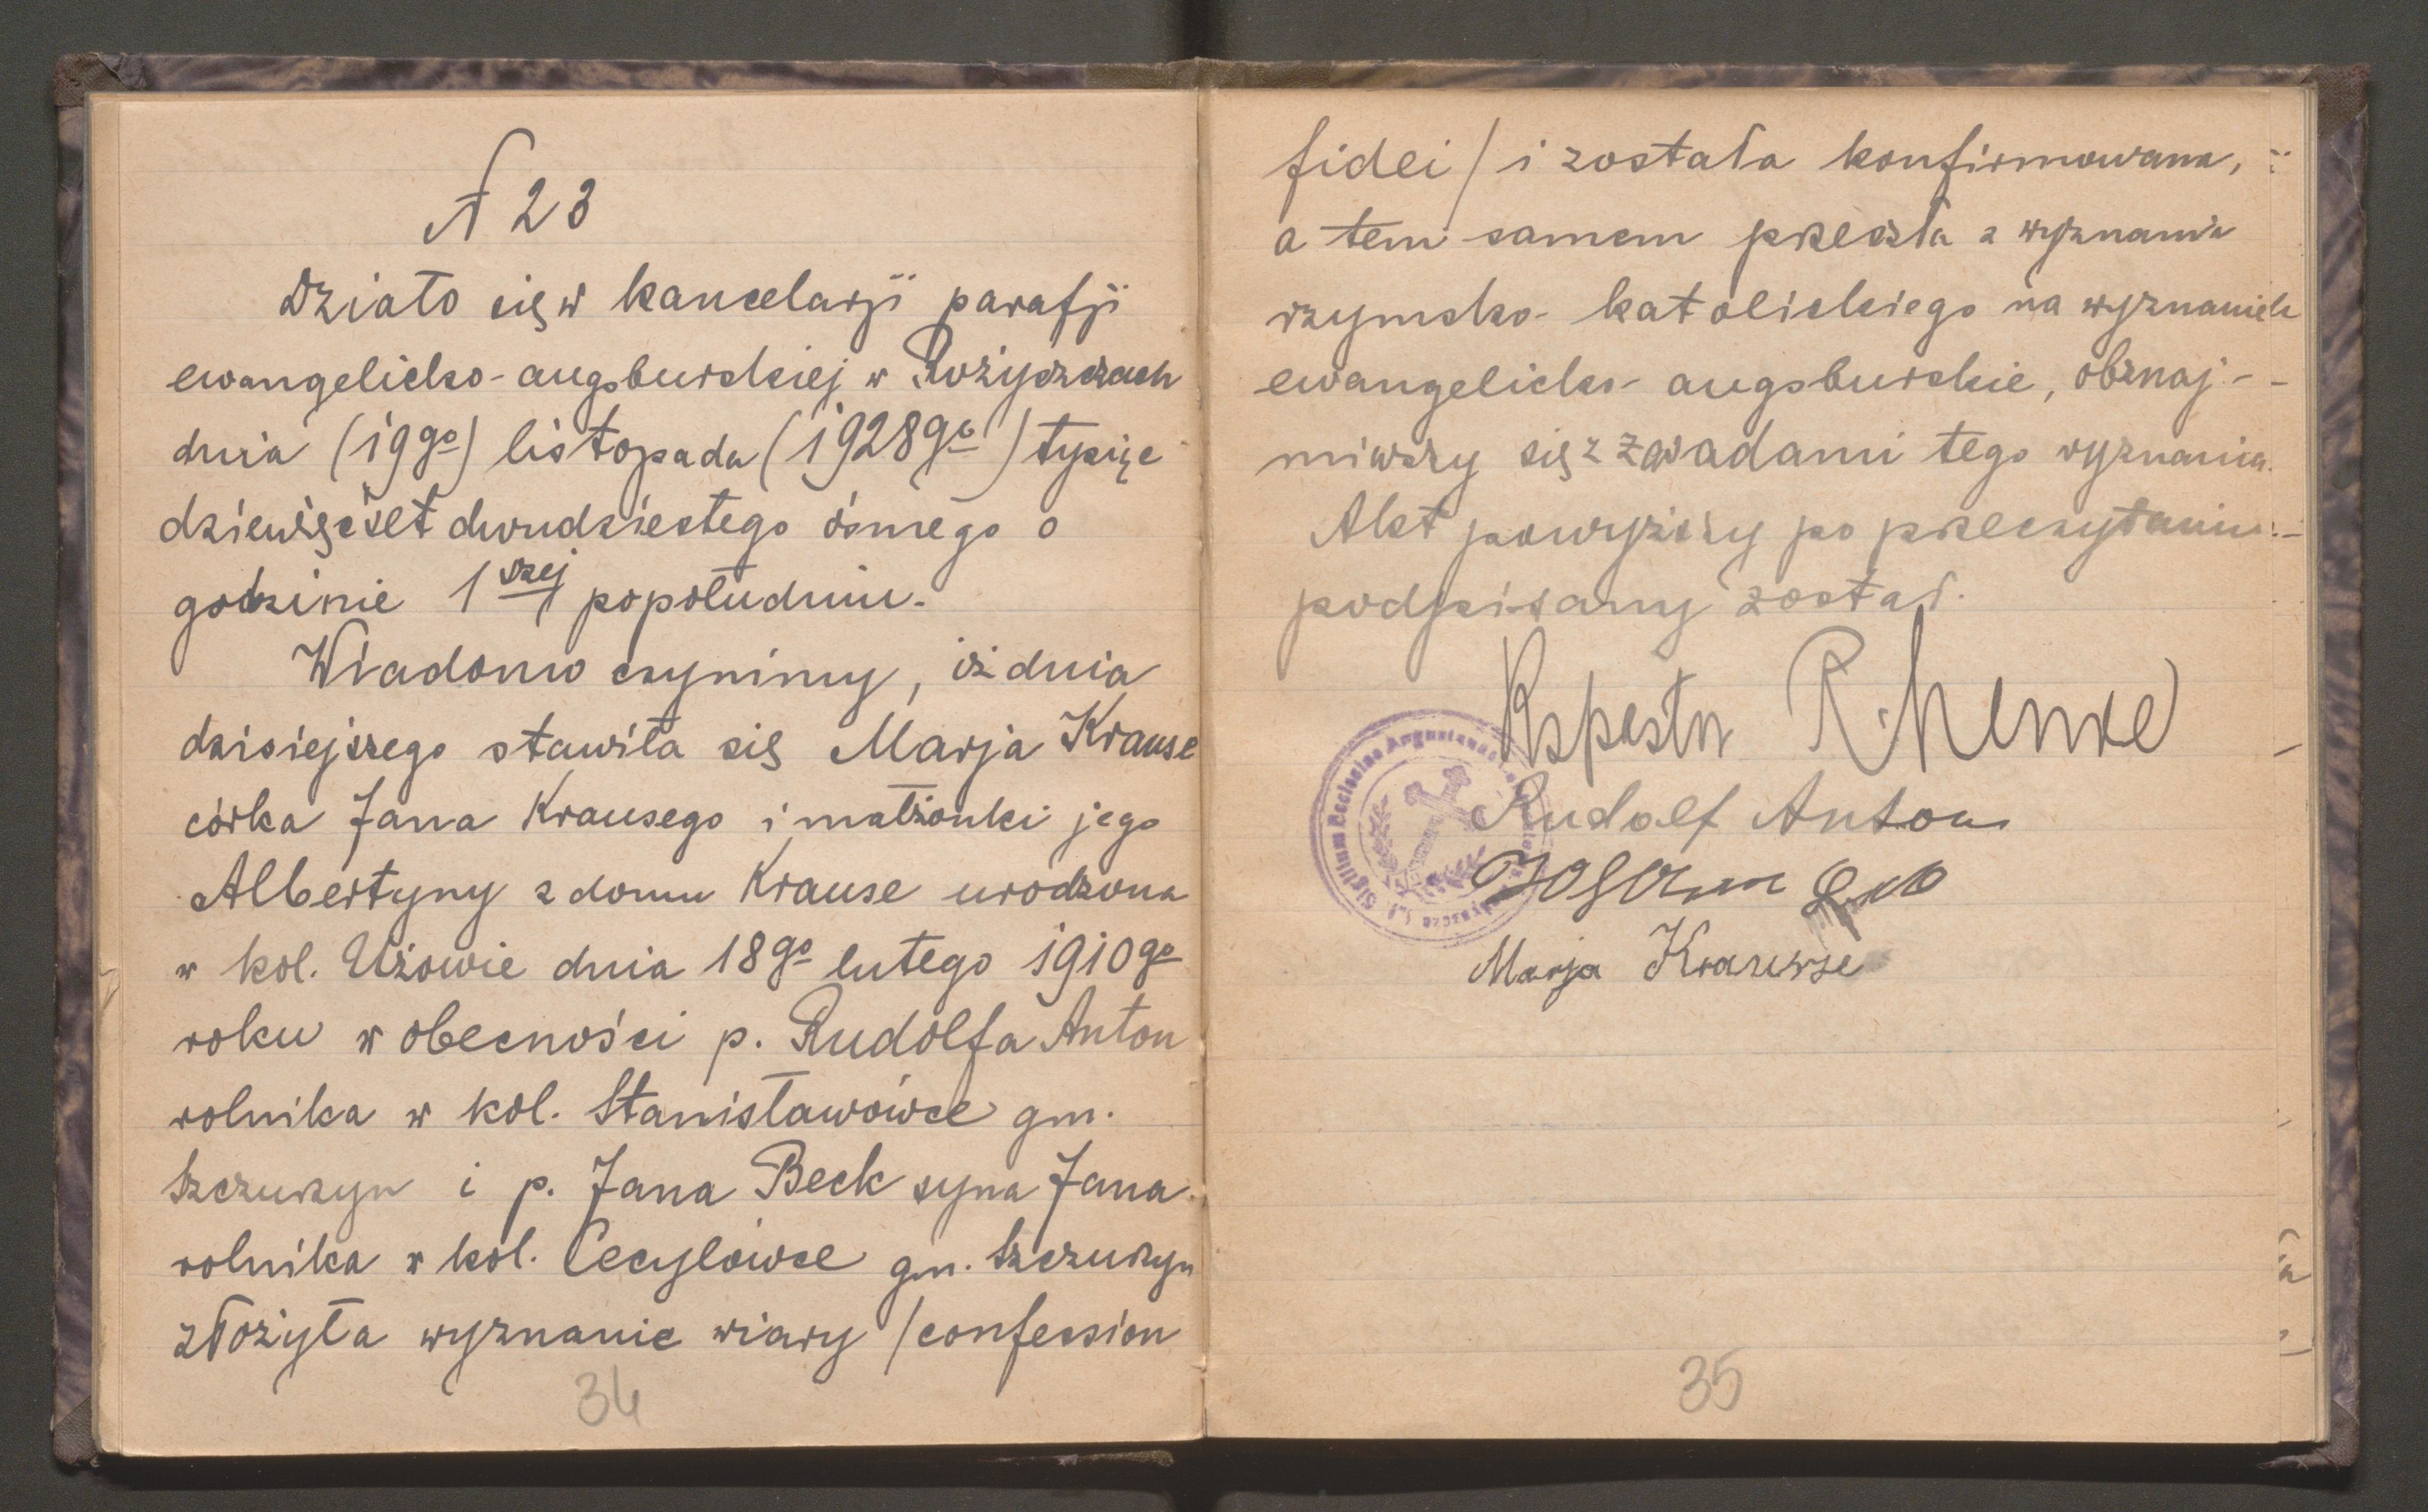 N 23
Działo się w kancelarji parafji
ewangelicko-augsburskiej w Rożyszczach
dnia (19go) listopada (1928go) tysiąc
dziewięćset dwudziestego ósmego o
godzinie 1szej popołudniu.
Wiadomo czynimy, iż dnia
dzisiejszego stawiła się Marja Krause
córka Jana Krausego i małżonki jego
Albertyny z domu Krause urodzona
w kol. Użowie dnia 18go lutego 1910go
roku w obecności p. Rudolfa Anton
rolnika w kol. Stanisławówce gm.
Szczurzyn i p. Jana Beck syna Jana
rolnika w kol. Cecylówce gm. Szczurzyn
złożyła wyznanie wiary /confession
34
fidei/ i została konfirmowana,
a tem samem przeszła z wyznania
rzymsko-katolickiego na wyznanie
ewangelicko-augsburskie, obznaj-
miwszy się z zasadami tego wyznania.
Akt powyższy po przeczytaniu
podpisany został.
R.
Rudolf Anton
Marja Krause
Sigillum Ecclesiae Augustanae
35